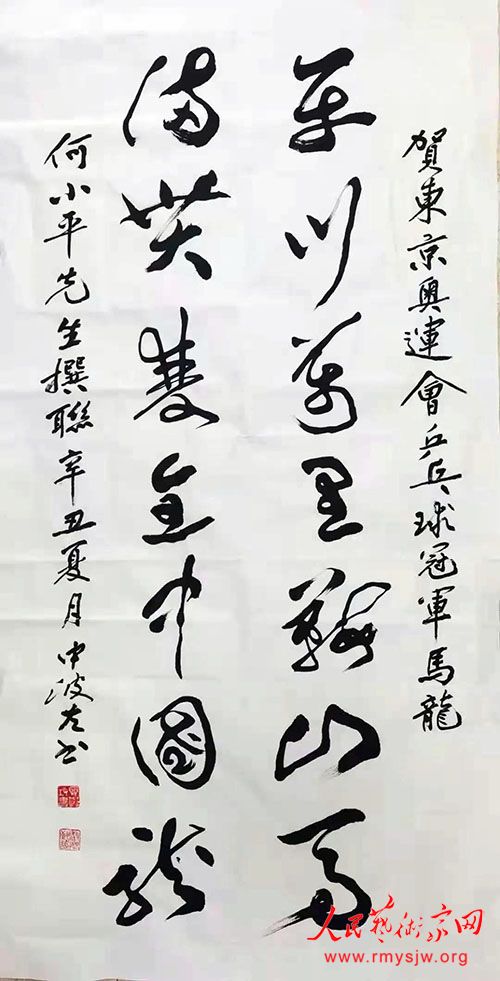 賀東京奧運會乒乓球冠軍馬龍
平川萬里鞍山馬
滿貫雙全中國龍
何小平先生撰聯辛丑夏月中波左书
人民藝術家网
www.rmysjw.org